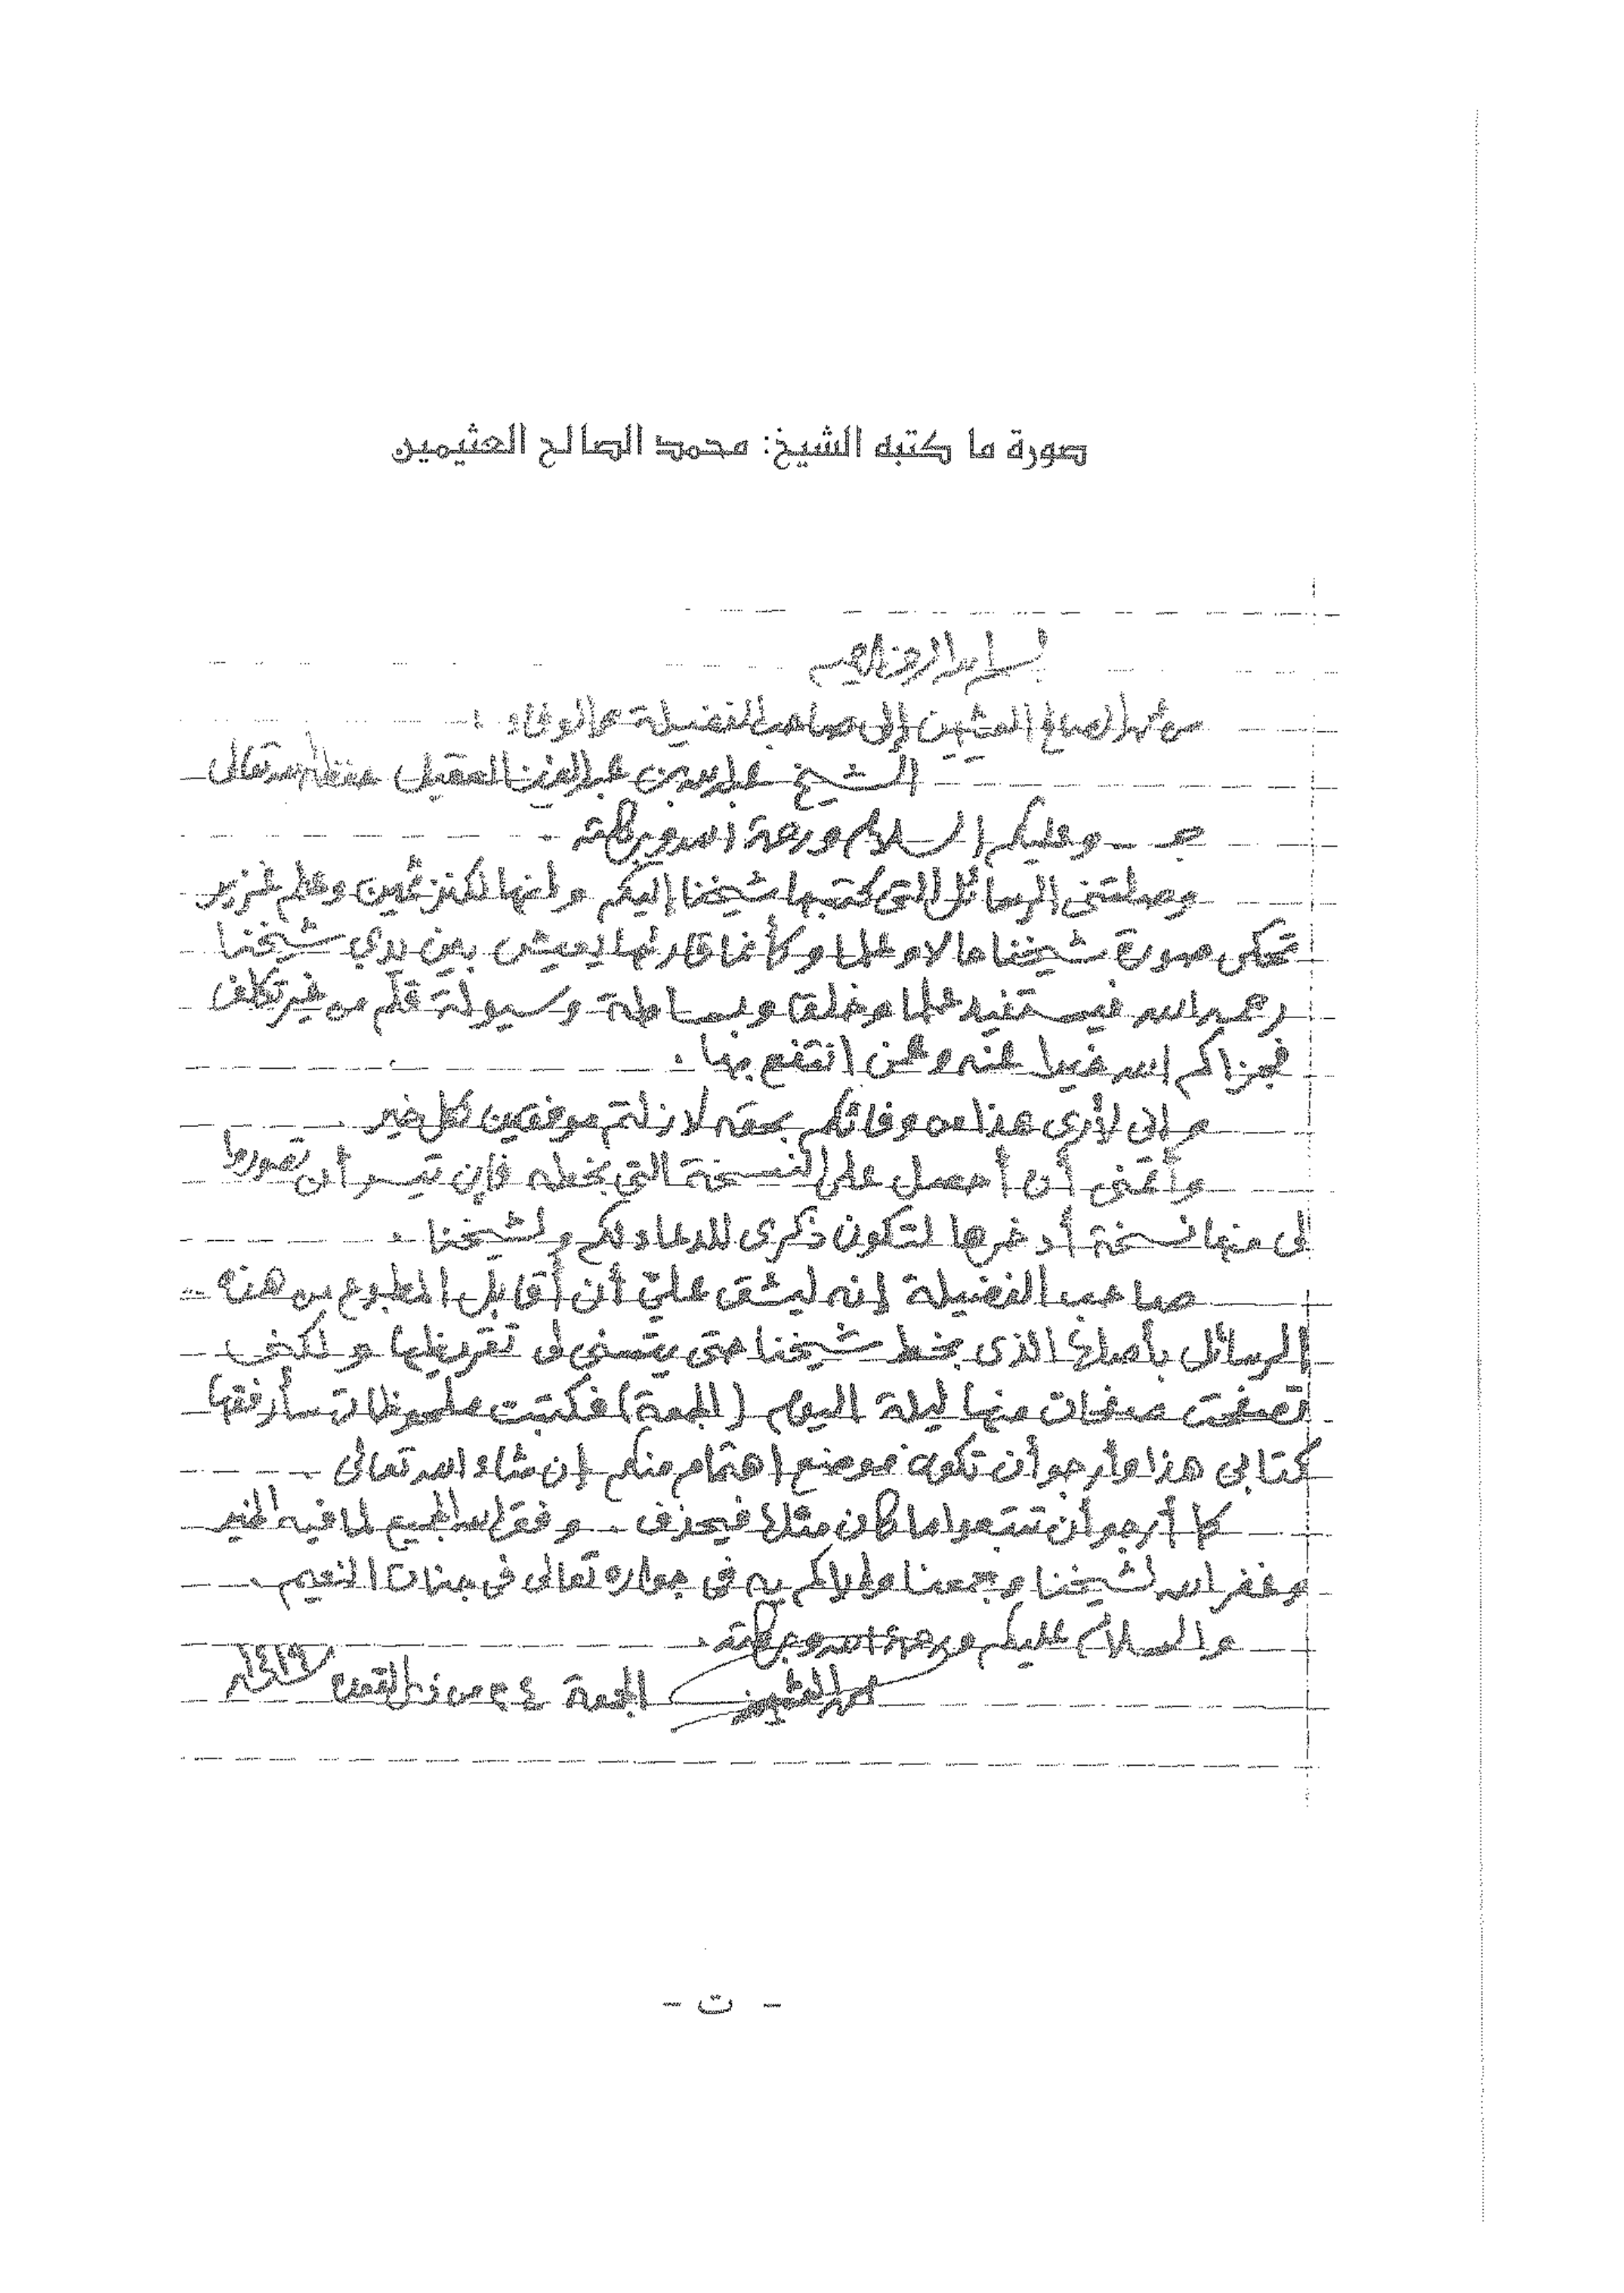 صورة ما كتبه الشيخ: محمد الصالح العثيمين
بسم الله الرحمن الرحيم
من محمد الصالح العثيمين إلى صاحب الفضيلة والوفاء :
الشيخ عبد الله بن عبد العزيز العقيل حفظه الله تعالى
جـ ـ وعليكم السلام ورحمة الله وبركاته .
وصلتني الرسائل التي كتبها شيخنا إليكم وإنها لكنز ثمين وعلم غزير
تحكى صورة شيخنا حالا وعلما وكأنما قارئها يعيش بين يدي شيخنا
رحمه الله فيستفيد علما وخلقا وبساطة وسيولة قلم من غير تكلف
فجزاكم الله خيرا عنه وعمن انتفع بها .
وإنى لأرى هذا من وفائكم بحقه لا زلتم موفقين لكل خير
وأتمنى أن أحصل على النسخة التي بخطه فإن تيسر أن تصوروا
لى منها نسخة أدخرها لتكون ذكرى للدعاء لكم ولشيخنا .
صاحب الفضيلة إنه ليشق علىّ أن أقابل المطبوع من هذه
الرسائل بأصلها الذى بخط شيخنا حتى يتسنى لى تقريظها ولكنى
تصفحت صفحات منها ليلة اليوم (الجمعة) فكتبت ملحوظات سأرفقها
كتابى هذا وأرجو أن تكون موضع اهتمام منكم إن شاء الله تعالى .
كما أرجو أن تتبعوا ما كان مثلها فيحذف . وفق الله الجميع لما فيه الخير
وغفر الله لشيخنا وجمعنا وإياكم به فى جواره تعالى فى جنات النعيم .
والسلام عليكم ورحمة الله وبركاته .
محمد العثيمين الجمعة من ذى القعدة ١٤١٩هـ
- ت -